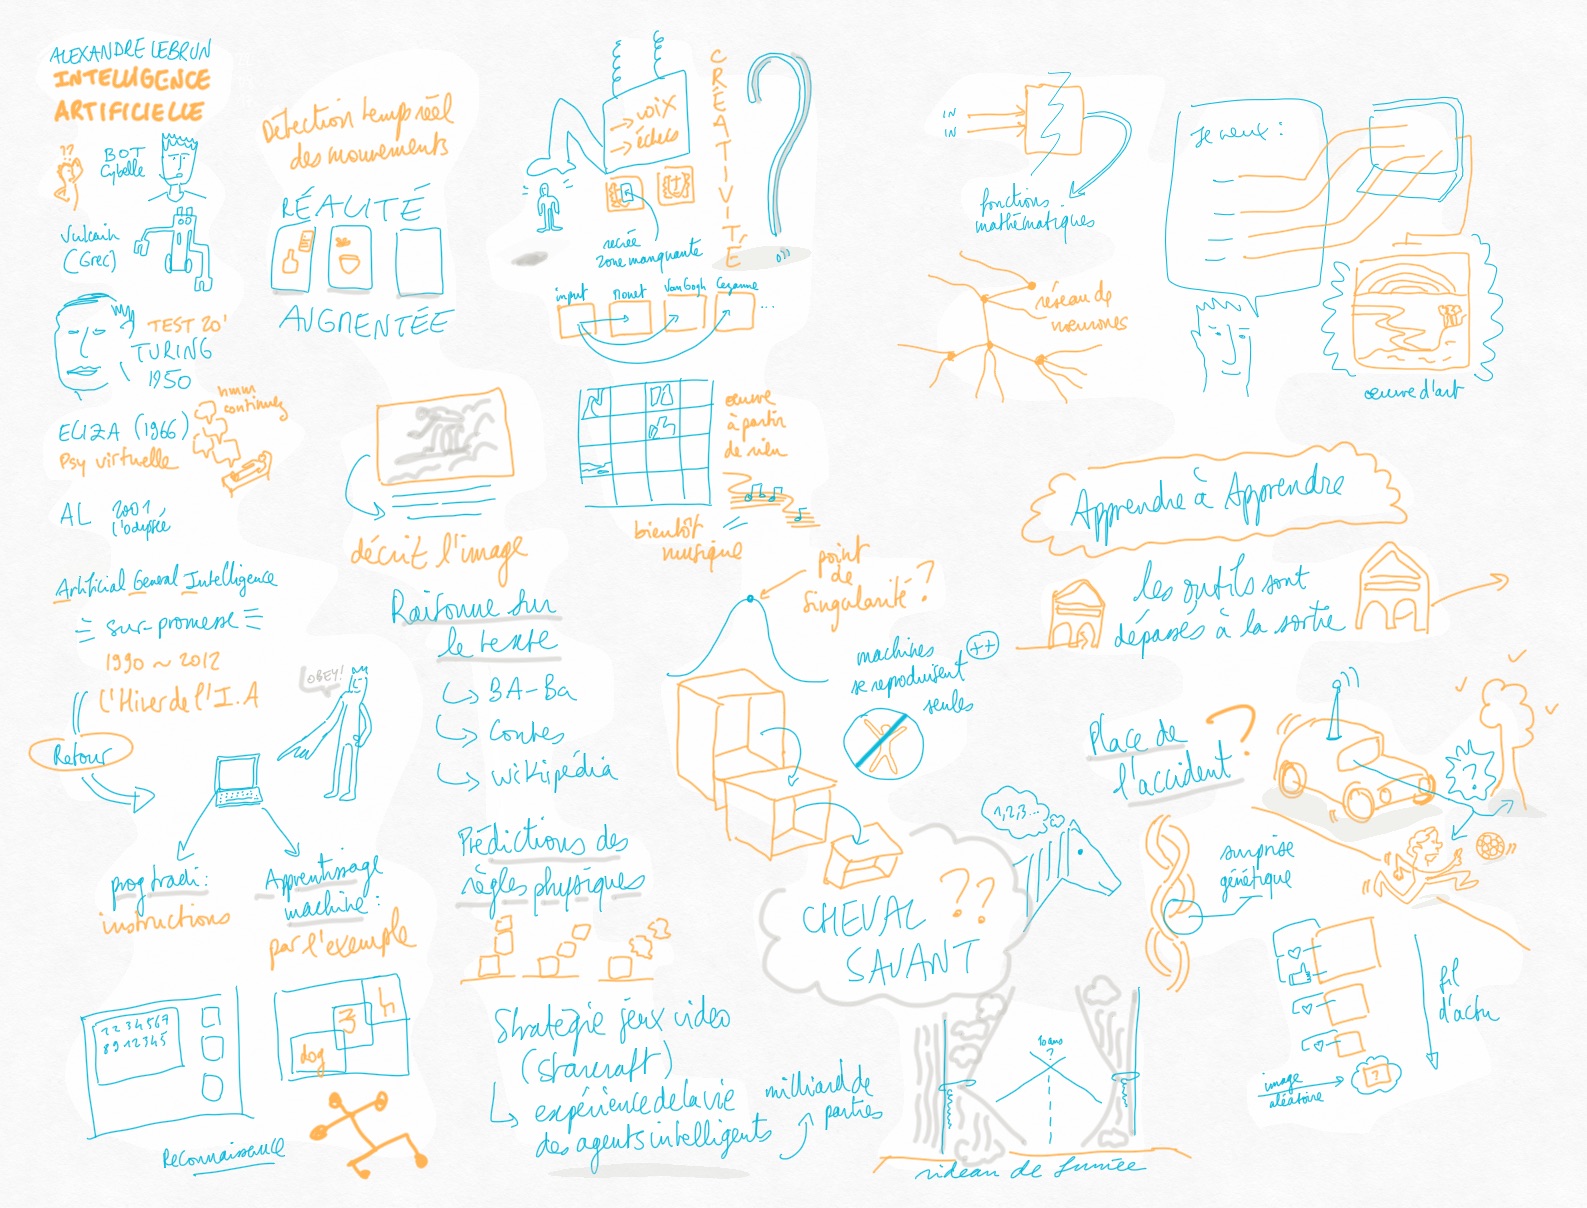 ALEXANDRE LEBRUN
INTELLIGENCE
ARTIFICIELLE
??
BOT
Cybelle
Vulcain
(Grec)
TEST 20'
TURING
1950
hmm
continuez
ELIZA (1966)
Psy virtuelle
AL 2001
l'odyssée
Artificial General Intelligence
sur-promesse
1990 ~ 2012
l'Hiver de l'I.A
Retour
OBEY!
prog tradi:
instructions
Apprentissage
machine:
par l'exemple
1 2 3 4 5 6 7
8 9 1 2 3 4 5
3
h
dog
Reconnaissance
Détection temps réel
des mouvements
RÉALITÉ
AUGMENTÉE
décrit l'image
Raisonne sur
le texte
BA-Ba
Contes
wikipédia
Prédictions des
règles physiques
Stratégie jeux video
(starcraft)
expérience de la vie
des agents intelligents
milliard de
parties
voix
échecs
CRÉATIVITÉ
?
recrée
zone manquante
input
Monet
Van Gogh
Cezanne
...
œuvre
à partir
de rien
bientôt
musique
point
de
singularité?
machines
se reproduisent
seules
++
1,2,3...
CHEVAL
SAVANT
??
10 ans
?
rideau de fumée
IN
IN
fonctions
mathématiques
réseau de
neurones
Je veux:
œuvre d'art
Apprendre à Apprendre
les outils sont
dépassés à la sortie
Place de
l'accident?
?
surprise
génétique
fil
d'actu
image
aléatoire
?